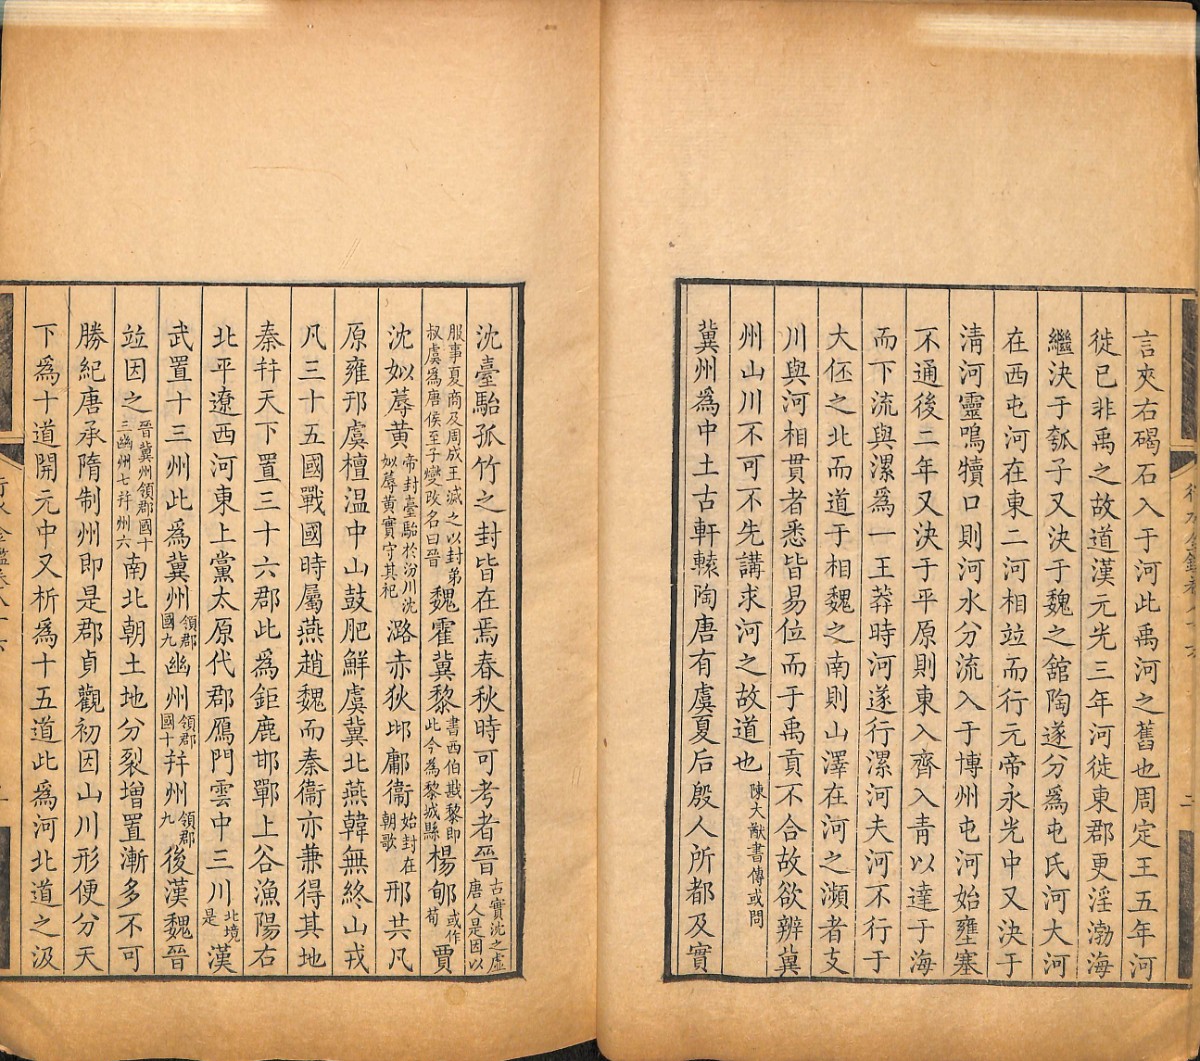 言夾右碣石入于河此禹河之舊也周定王五年河
徙已非禹之故道漢元光三年河徙東郡更淫渤海
繼決于瓠子又決于魏之舘陶遂分爲屯氏河大河
在西屯河在東二河相竝而行元帝永光中又決于
淸河靈鳴犢口則河水分流入于博州屯河始壅塞
不通後二年又決于平原則東入齊入青以達于海
而下流與漯爲一王莽時河遂行漯河夫河不行于
大伾之北而道于相魏之南則山澤在河之瀕者支
川與河相貫者悉皆易位而于禹貢不合故欲辨冀
州山川不可不先講求河之故道也陳大猷書傳或問
冀州爲中土古軒轅陶唐有虞夏后殷人所都及實
沈臺駘孤竹之封皆在焉春秋時可考者晉古實沈之虛唐人是因以
服事夏商及周成王滅之以封弟叔虞爲唐侯至子燮改名曰晉魏霍冀黎書西伯戡黎即此今為黎城縣楊郇或作荀賈
沈姒蓐黃帝封臺駘於汾川沈姒蓐黃實守其祀潞赤狄邶鄘衞始封在朝歌邢共凡
原雍邘虞檀温中山鼓肥鮮虞冀北燕韓無終山戎
凡三十五國戰國時屬燕趙魏而秦衞亦兼得其地
秦幷天下置三十六郡此爲鉅鹿邯鄲上谷漁陽右
北平遼西河東上黨太原代郡鴈門雲中三川北境是漢
武置十三州此爲冀州領郡國九幽州領郡國十幷州領郡九後漢魏晉
竝因之晉冀州領郡國十三幽州七幷州六南北朝土地分裂增置漸多不可
勝紀唐承隋制州即是郡貞觀初因山川形便分天
下爲十道開元中又析爲十五道此爲河北道之汲